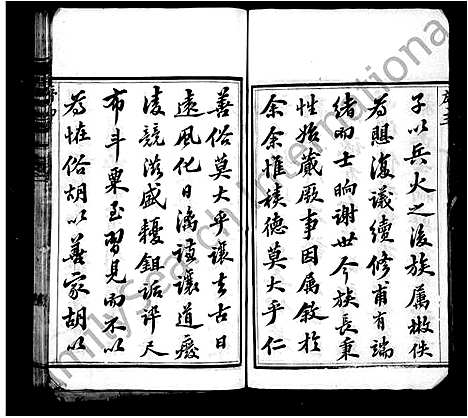 子以兵火之後族属散佚
為思復議續修甫有端
緒而士晌謝世今族長秉
性始蕆厥事因属敘於
余余惟積德莫大乎仁
善俗莫大乎讓去古日
遠風化日漓謙讓道廢
凌競滋盛耰鉏詬誶尺
布斗粟互習見而不以
為怪俗胡以善家胡以
FamilySearch International